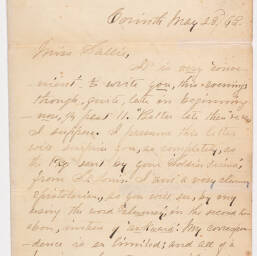 Corinth May 23, 62.
Miss Sallie,
It is very conve-
nient to write you, this evening
though, quite, late in beginning
now, 1/4 past 11. "Better late than never"
I suppose. I presume this letter
will surprise you, as completely, as
the sent by your "Soldier friend",
from St. Louis. I am a very clumsy
epistolarian, as you will see, by my
using the word in the second line
above, instead of awkward. My correspon-
dence is so limited; and all of a